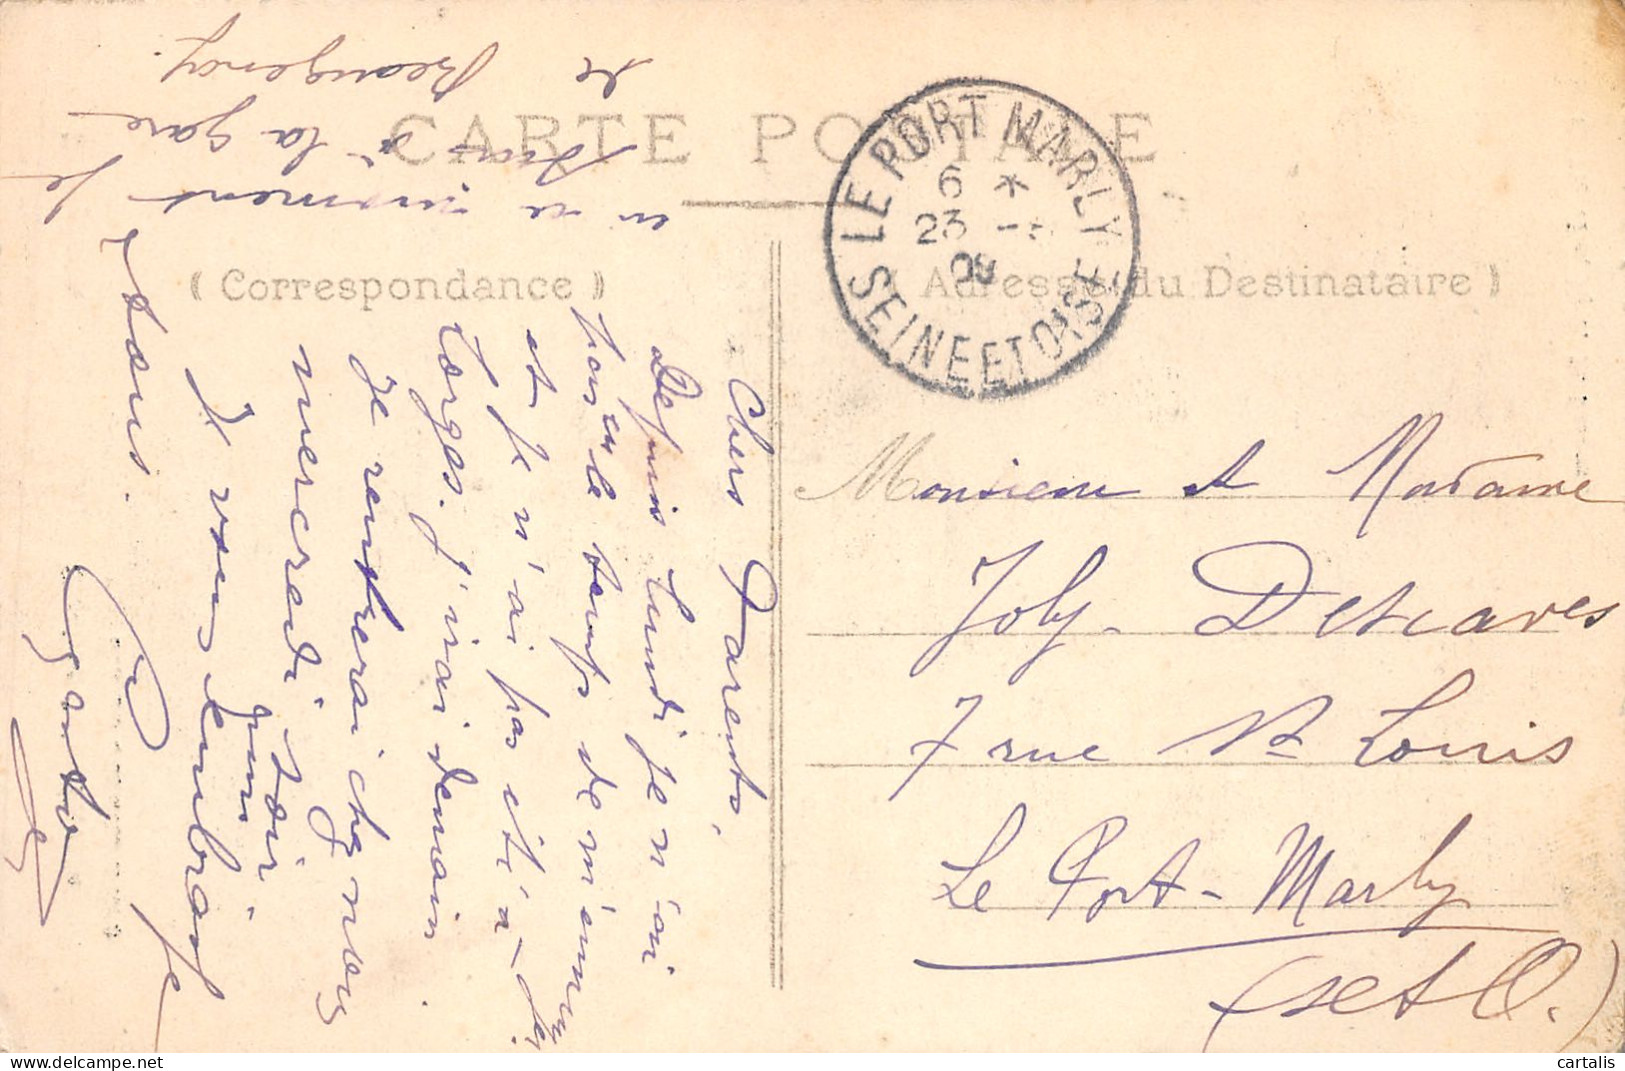 CARTE POSTALE
( Correspondance )
( Adresse du Destinataire )
LE PORT MARLY
6 *
23 -
09
SEINE ET OISE
Monsieur et Madame
Joly-Descaves
7 rue St Louis
Le Port-Marly
(S et O.)
Chers Parents,
Depuis lundi je n'ai
pas eu le temps de m'ennuyer
et je n'ai pas été à
J'irai demain
Je rentrerai chez nous
mercredi soir
Je vous embrasse
tous.
en ce moment je
suis à la gare
de Beaugency.
cartalis